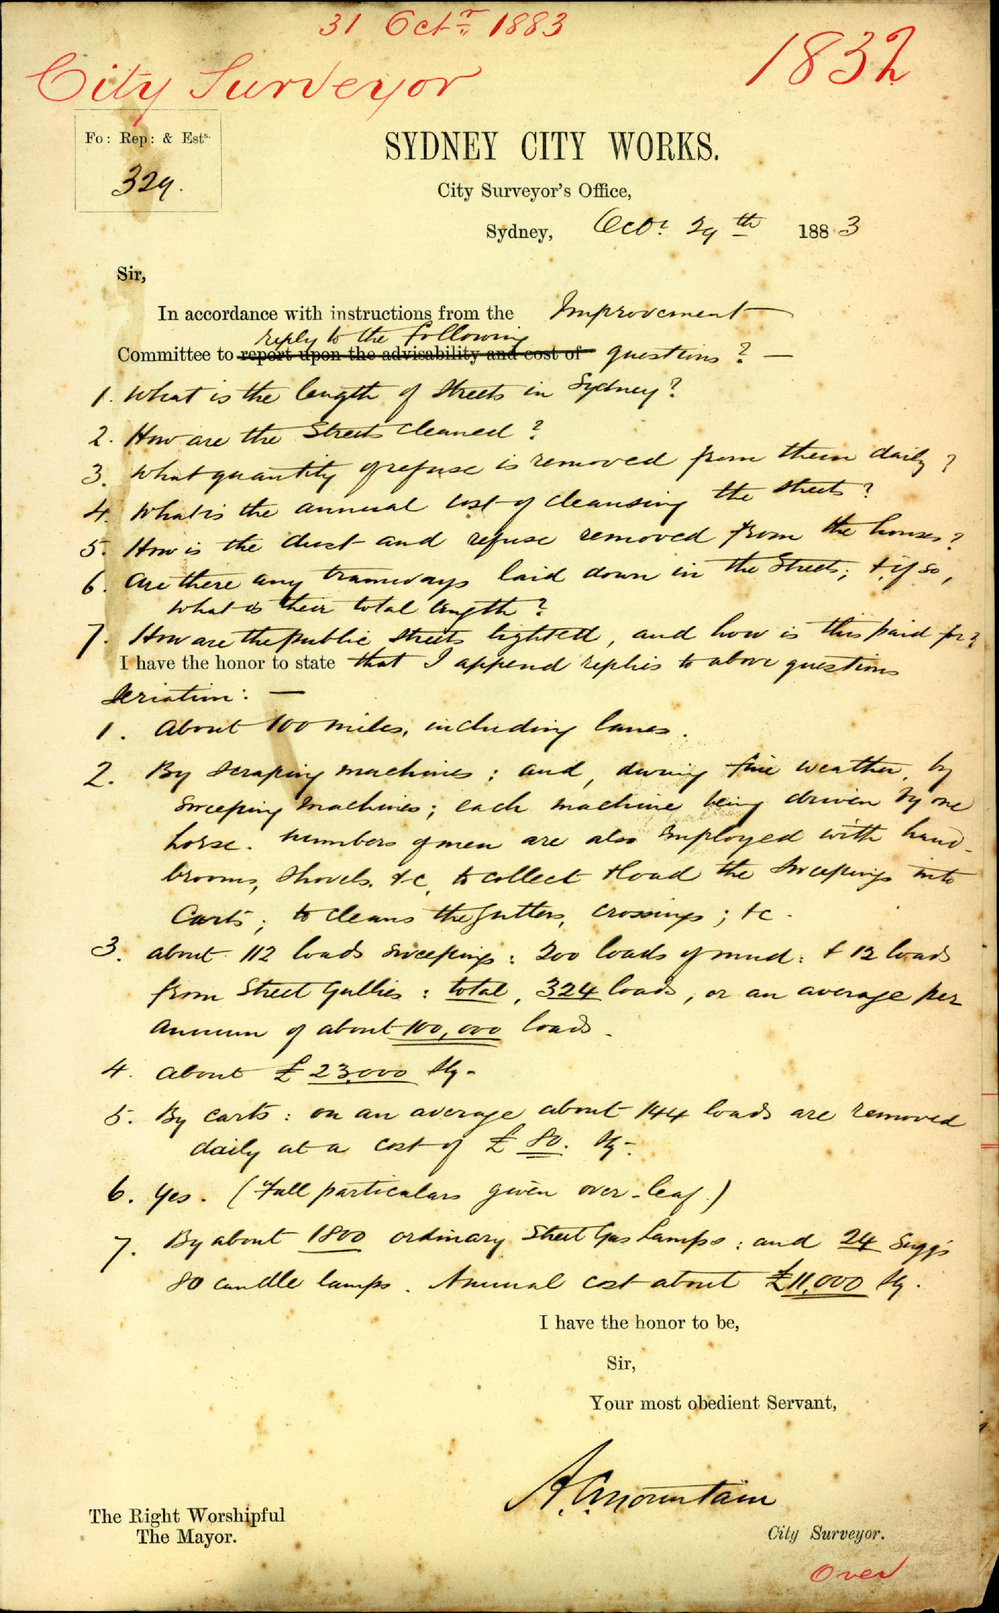 31 Octr. 1883
1832
City Surveyor
Fo: Rep: & Ests.
329.
SYDNEY CITY WORKS.
City Surveyor's Office,
Sydney, Octr. 29th 1883
Sir,
In accordance with instructions from the Improvement
reply to the following
Committee to report upon the advisability and cost of questions? —
1. What is the length of Streets in Sydney?
2. How are the Streets cleaned?
3. What quantity of refuse is removed from them daily?
4. What is the annual cost of cleansing the streets?
5. How is the dust and refuse removed from the houses?
6. Are there any tramways laid down in the Streets; & if so,
what is their total length?
7. How are the public streets lighted, and how is this paid for?
I have the honor to state that I append replies to above questions
seriatim: —
1. About 100 miles, including lanes.
2. By scraping machines; and, during fine weather, by
sweeping machines; each machine being driven by one
horse. Numbers of men are also employed with hand-
brooms, shovels, &c, to collect & load the sweepings into
Carts; to cleans the gutters, crossings; &c.
3. about 112 loads sweepings: 200 loads of mud: & 12 loads
from Street Gullies: total, 324 loads, or an average per
annum of about 100,000 loads.
4. About £23,000 Stg.
5. By carts: on an average about 144 loads are removed
daily at a cost of £80. Stg.
6. Yes. (Full particulars given over-leaf.)
7. By about 1800 ordinary Street Gas Lamps: and 24 Sugg's
80 candle lamps. Annual cost about £11,000 Stg.
I have the honor to be,
Sir,
Your most obedient Servant,
A. C. Mountain
City Surveyor.
The Right Worshipful
The Mayor.
Over